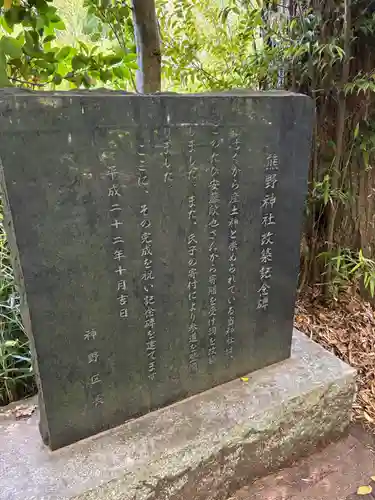 熊野神社改築記念碑
昔から産土神と崇められている当神社は、
このたび安藤欣也さんから寄贈を受け祠を改
築しました。また、氏子の寄付により参道を
りました
ここに、その完成を祝い記念碑を建てます
平成二十二年十月吉日
神野区民